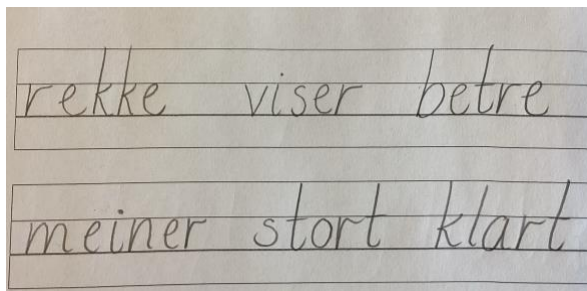 rekke viser betre
meiner stort klart